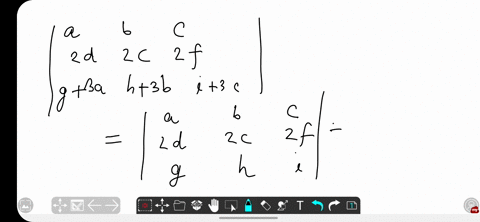 | a b c |
| 2d 2c 2f |
| g+3a h+3b i+3c |
= | a b c | =
| 2d 2c 2f |
| g h i |